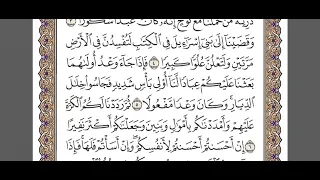 ذُرِّيَّةَ مَنْ حَمَلْنَا مَعَ نُوحٍ إِنَّهُۥ كَانَ عَبْدًا شَكُورًا ٣
وَقَضَيْنَآ إِلَىٰ بَنِىٓ إِسْرَٰٓءِيلَ فِى ٱلْكِتَٰبِ لَتُفْسِدُنَّ فِى ٱلْأَرْضِ
مَرَّتَيْنِ وَلَتَعْلُنَّ عُلُوًّا كَبِيرًا ٤ فَإِذَا جَآءَ وَعْدُ أُولَىٰهُمَا
بَعَثْنَا عَلَيْكُمْ عِبَادًا لَّنَآ أُو۟لِى بَأْسٍ شَدِيدٍ فَجَاسُوا۟ خِلَٰلَ
ٱلدِّيَارِ وَكَانَ وَعْدًا مَّفْعُولًا ٥ ثُمَّ رَدَدْنَا لَكُمُ ٱلْكَرَّةَ
عَلَيْهِمْ وَأَمْدَدْنَٰكُم بِأَمْوَٰلٍ وَبَنِينَ وَجَعَلْنَٰكُمْ أَكْثَرَ نَفِيرًا
٦ إِنْ أَحْسَنتُمْ أَحْسَنتُمْ لِأَنفُسِكُمْ وَإِنْ أَسَأْتُمْ فَلَهَا فَإِذَا